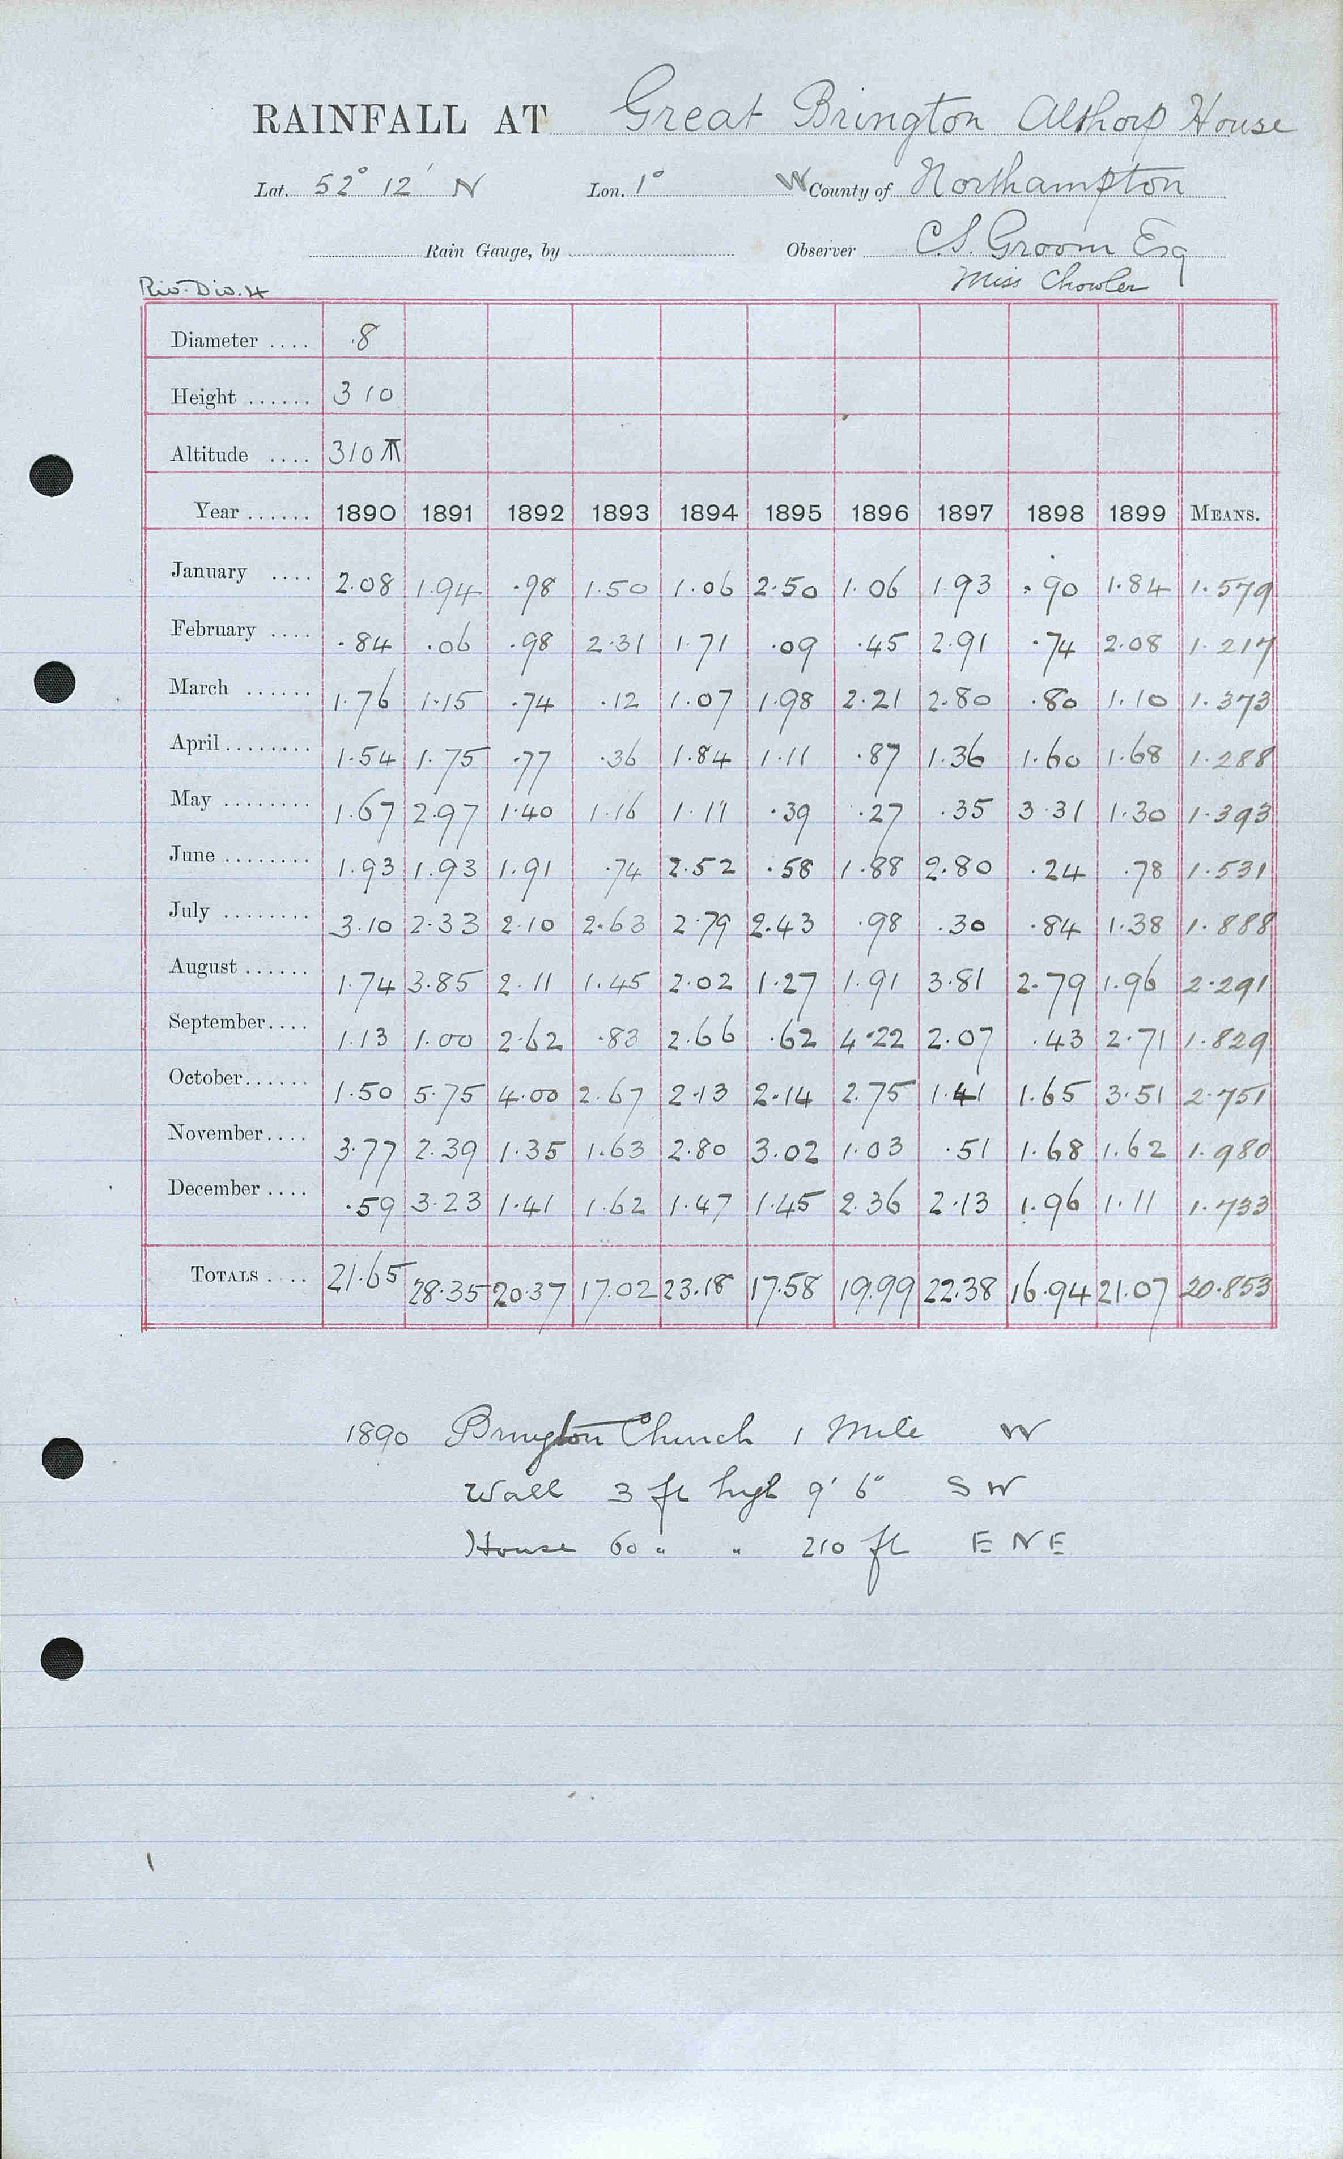 RAINFALL AT Great Brington Althorp House
Lat. 52° 12' N Lon. 1° W County of Northampton
Rain Gauge, by Observer C.S. Groom Esq
Miss Chowler
Riv. Div. 4
Diameter .... .8
Height ...... 310
Altitude .... 310
Year ...... 1890 1891 1892 1893 1894 1895 1896 1897 1898 1899 MEANS.
January .... 2.08 1.94 .98 1.50 1.06 2.50 1.06 1.93 .90 1.84 1.579
February .... .84 .06 .98 2.31 1.71 .09 .45 2.91 .74 2.08 1.217
March ...... 1.76 1.15 .74 .12 1.07 1.98 2.21 2.80 .80 1.10 1.373
April ........ 1.54 1.75 .77 .36 1.84 1.11 .87 1.36 1.60 1.68 1.288
May ........ 1.67 2.97 1.40 1.16 1.11 .39 .27 .35 3.31 1.30 1.393
June ........ 1.93 1.93 1.91 .74 2.52 .58 1.88 2.80 .24 .78 1.531
July ........ 3.10 2.33 2.10 2.63 2.79 2.43 .98 .30 .84 1.38 1.888
August ...... 1.74 3.85 2.11 1.45 2.02 1.27 1.91 3.81 2.79 1.96 2.291
September.... 1.13 1.00 2.62 .83 2.66 .62 4.22 2.07 .43 2.71 1.829
October...... 1.50 5.75 4.00 2.67 2.13 2.14 2.75 1.41 1.65 3.51 2.751
November.... 3.77 2.39 1.35 1.63 2.80 3.02 1.03 .51 1.68 1.62 1.980
December .... .59 3.23 1.41 1.62 1.47 1.45 2.36 2.13 1.96 1.11 1.733
TOTALS .... 21.65 28.35 20.37 17.02 23.18 17.58 19.99 22.38 16.94 21.07 20.853
1890 Brington Church 1 Mile W
Wall 3 ft high 9' 6" S W
House 60 " " 210 ft E N E